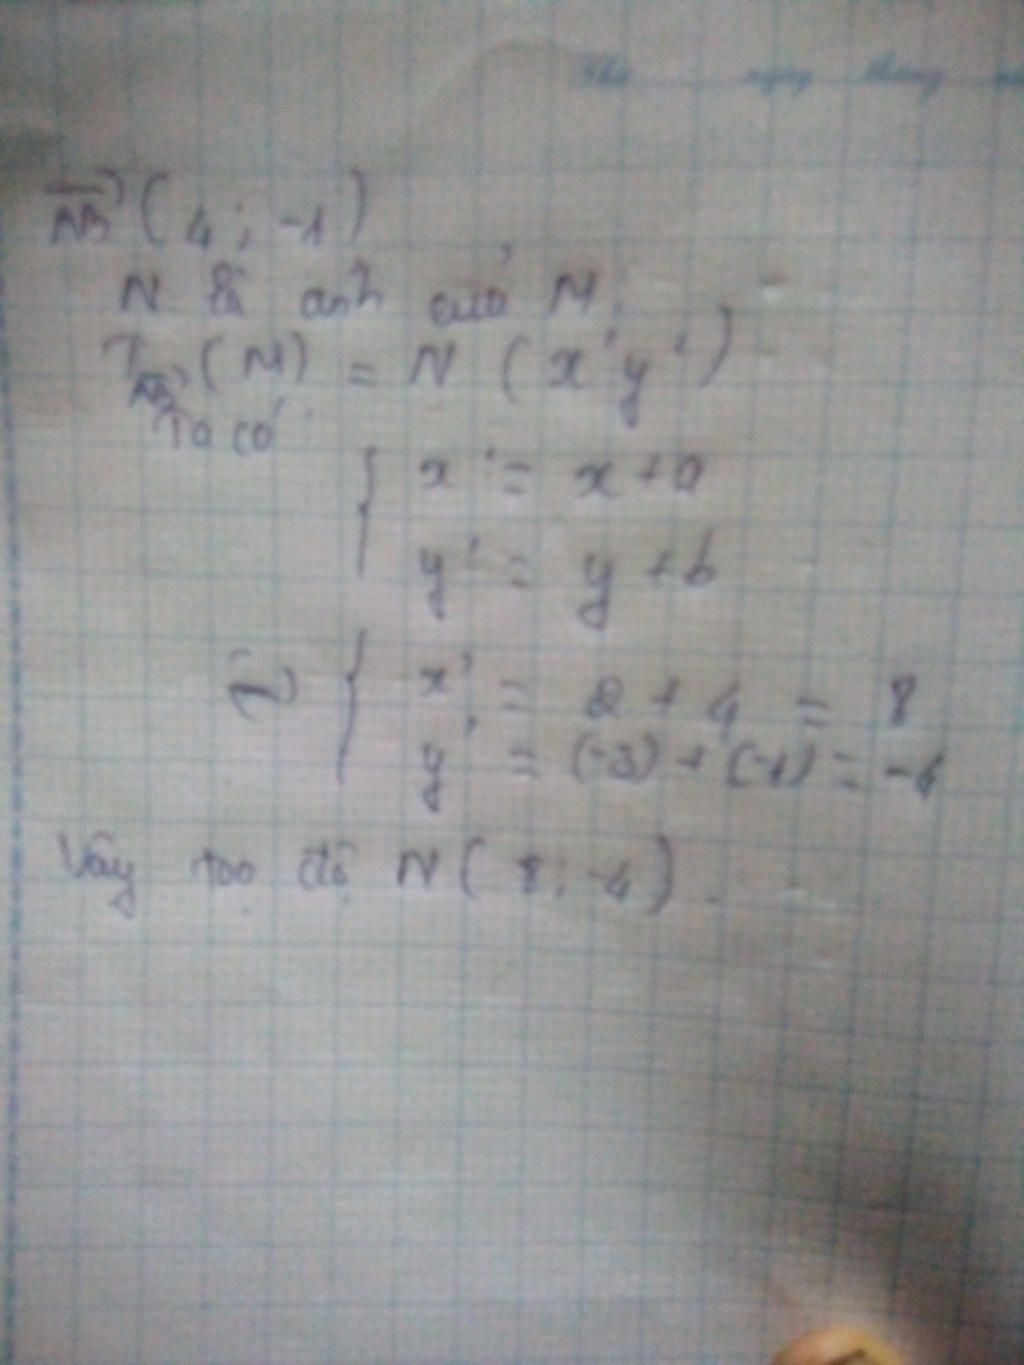 Thứ ngày tháng
AB→ (4; -1)
N là ảnh của M.
T AB→ (M) = N (x' y')
Ta có
{ x' = x + a
y' = y + b
{ x' = 2 + 4 = 8
y' = (-3) + (-1) = -4
Vậy tọa độ N (8; -4).